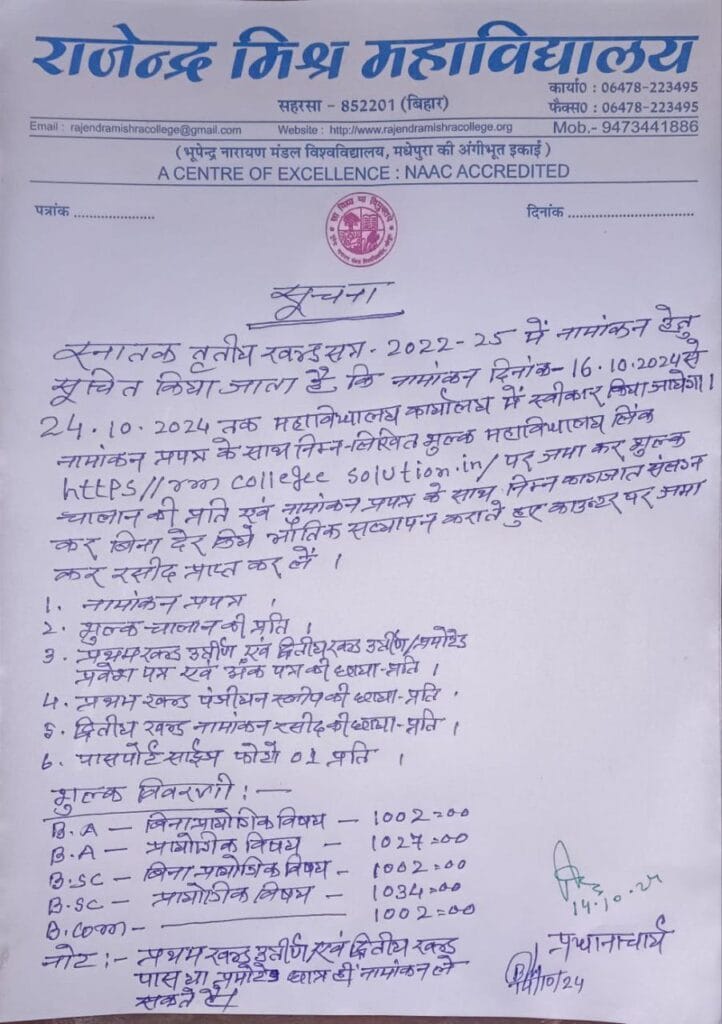 राजेन्द्र मिश्र महाविद्यालय
सहरसा - 852201 (बिहार)
कार्या० : 06478-223495
फैक्स० : 06478-223495
Email : rajendramishracollege@gmail.com Website : http://www.rajendramishracollege.org Mob.- 9473441886
(भूपेन्द्र नारायण मंडल विश्वविद्यालय, मधेपुरा की अंगीभूत इकाई)
A CENTRE OF EXCELLENCE : NAAC ACCREDITED
पत्रांक ....................
दिनांक ...............................
सूचना
स्नातक तृतीय खण्ड सत्र - 2022-25 में नामांकन हेतु
सूचित किया जाता है कि नामांकन दिनांक - 16.10.2024 से
24.10.2024 तक महाविद्यालय कार्यालय में स्वीकार किया जायेगा।
नामांकन प्रपत्र के साथ निम्न-लिखित शुल्क महाविद्यालय लिंक
https//rm collegee solution.in/ पर जमा कर शुल्क
चालान की प्रति एवं नामांकन प्रपत्र के साथ निम्न कागजात संलग्न
कर बिना देर किये भौतिक सत्यापन कराते हुए काउन्टर पर जमा
कर रसीद प्राप्त कर लें।
1. नामांकन प्रपत्र ।
2. शुल्क-चालान की प्रति ।
3. प्रथम खण्ड उत्तीर्ण एवं द्वितीय खण्ड उत्तीर्ण/प्रमोटेड
प्रवेश पत्र एवं अंक पत्र की छाया-प्रति ।
4. प्रथम खण्ड पंजीयन स्लीप की छाया-प्रति ।
5. द्वितीय खण्ड नामांकन रसीद की छाया-प्रति ।
6. पासपोर्ट साईज फोटो 01 प्रति ।
शुल्क विवरणी :-
B.A - बिना प्रायोगिक विषय - 1002=00
B.A - प्रायोगिक विषय - 1027=00
B.SC - बिना प्रायोगिक विषय - 1002=00
B.SC - प्रायोगिक विषय - 1034=00
B.Com - 1002=00
नोट :- प्रथम खण्ड उत्तीर्ण एवं द्वितीय खण्ड
पास या प्रमोटेड छात्र ही नामांकन ले
सकते हैं।
14.10.24
प्रधानाचार्य
14/10/24